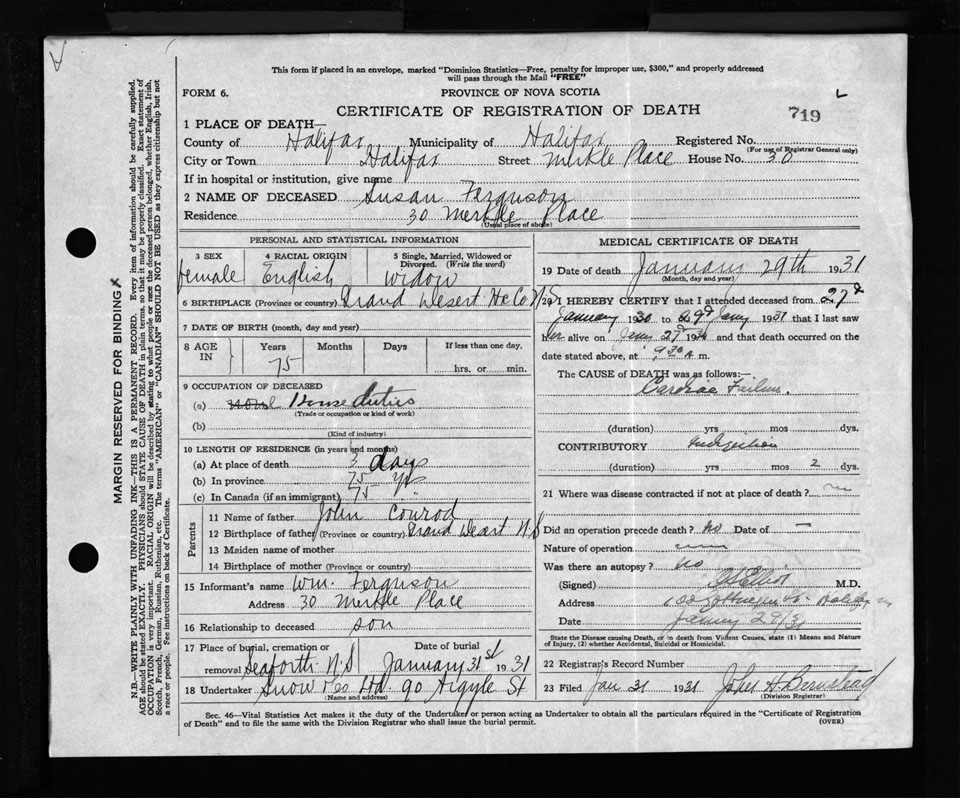 This form if placed in an envelope, marked "Dominion Statistics—Free, penalty for improper use, $300," and properly addressed
will pass through the Mail "FREE"
FORM 6.
PROVINCE OF NOVA SCOTIA
CERTIFICATE OF REGISTRATION OF DEATH
719
1 PLACE OF DEATH—
County of Halifax Municipality of Halifax Registered No.
(For use of Registrar General only)
City or Town Halifax Street Merkle Place House No. 30
If in hospital or institution, give name
2 NAME OF DECEASED Susan Ferguson
Residence 30 Merkle Place
(Usual place of abode)
PERSONAL AND STATISTICAL INFORMATION
3 SEX female
4 RACIAL ORIGIN English
5 Single, Married, Widowed or Divorced. (Write the word) Widow
6 BIRTHPLACE (Province or country) Grand Desert Hx Co N.S
7 DATE OF BIRTH (month, day and year)
8 AGE IN Years 75 Months Days If less than one day, hrs. or min.
9 OCCUPATION OF DECEASED
(a) House duties
(Trade or occupation or kind of work)
(b)
(Kind of industry)
10 LENGTH OF RESIDENCE (in years and months)
(a) At place of death 3 days
(b) In province 75 yrs
(c) In Canada (if an immigrant) 75 "
Parents
11 Name of father John Conrod
12 Birthplace of father (Province or country) Grand Desert N.S
13 Maiden name of mother
14 Birthplace of mother (Province or country)
15 Informant's name Wm. Ferguson
Address 30 Merkle Place
16 Relationship to deceased son
17 Place of burial, cremation or removal Seaforth N.S Date of burial January 31st 1931
18 Undertaker Snow & Co Ltd. 90 Argyle St
(Name and address)
MEDICAL CERTIFICATE OF DEATH
19 Date of death January 29th 1931
(Month, day and year)
20 I HEREBY CERTIFY that I attended deceased from 27d
January 1930 to 29d Jany 1931 that I last saw
her alive on Jany 27d 193 and that death occurred on the
date stated above, at 9.30 A m.
The CAUSE of DEATH was as follows:—
Cardiac Failure.
(duration) yrs mos dys.
CONTRIBUTORY Indigestion
(duration) yrs mos 2 dys.
21 Where was disease contracted if not at place of death?
Did an operation precede death? No Date of —
Nature of operation
Was there an autopsy? No
(Signed) Elliot M.D.
Address
Date Jany 29/31
State the Disease causing Death, or in death from Violent Causes, state (1) Means and Nature
of Injury, (2) whether Accidental, Suicidal or Homicidal.
22 Registrar's Record Number
23 Filed Jan 31 1931 John H. Barnstead
(Division Registrar)
Sec. 46—Vital Statistics Act makes it the duty of the Undertaker or person acting as Undertaker to obtain all the particulars required in the "Certificate of Registration
of Death" and to file the same with the Division Registrar who shall issue the burial permit.
(OVER)
MARGIN RESERVED FOR BINDING
N.B.—WRITE PLAINLY WITH UNFADING INK—THIS IS A PERMANENT RECORD. Every item of information should be carefully supplied.
AGE should be stated EXACTLY. PHYSICIANS should STATE CAUSE OF DEATH in plain terms, so that it may be properly classified. Exact statement of
OCCUPATION is very important. RACIAL ORIGIN will be described by stating to what people or race the deceased person belonged, whether English, Irish,
Scotch, French, German, Russian, Ruthenian, etc. The terms "AMERICAN" or "CANADIAN" SHOULD NOT BE USED as they express citizenship but not
a race or people. See instructions on back of Certificate.